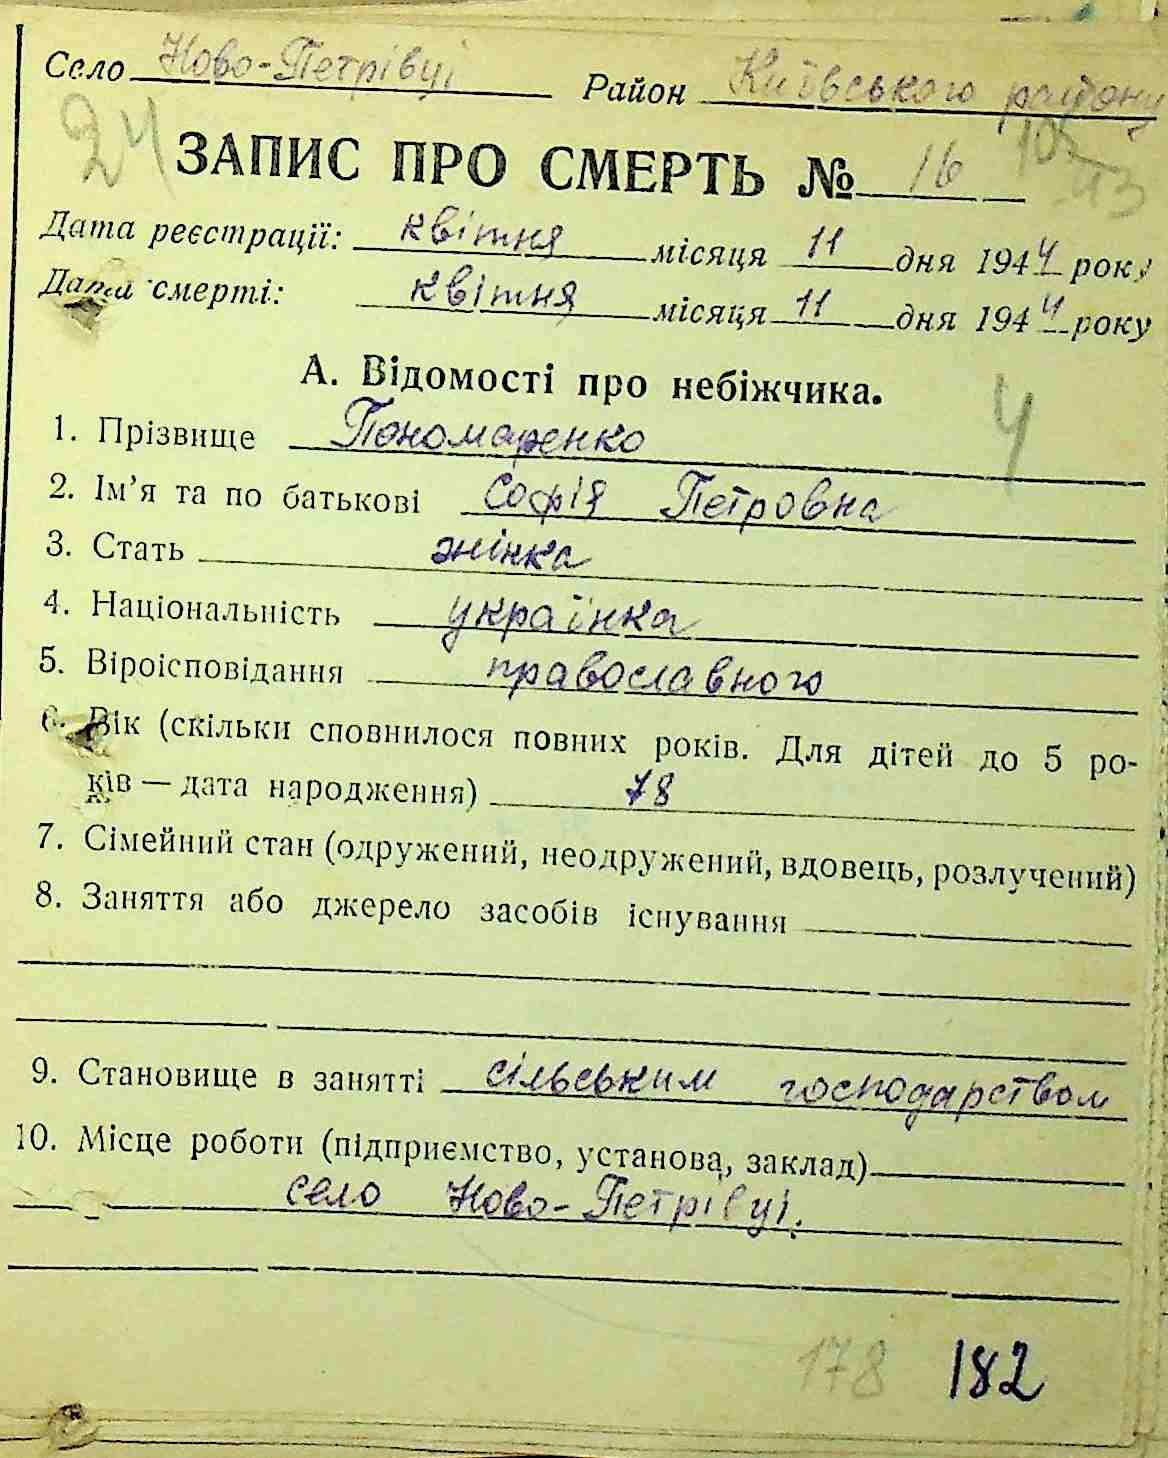 Село Ново-Петрівці Район Київського району
24 ЗАПИС ПРО СМЕРТЬ № 16
Дата реєстрації: квітня місяця 11 дня 1944 року
Дата смерті: квітня місяця 11 дня 1944 року
А. Відомості про небіжчика.
4
1. Прізвище Пономаренко
2. Ім’я та по батькові Софія Петровна
3. Стать жінка
4. Національність українка
5. Віроісповідання православного
6. Вік (скільки сповнилося повних років. Для дітей до 5 ро-
ків — дата народження) 78
7. Сімейний стан (одружений, неодружений, вдовець, розлучений)
8. Заняття або джерело засобів існування
9. Становище в занятті сільським господарством
10. Місце роботи (підприємство, установа, заклад)
село Ново-Петрівці.
178 182